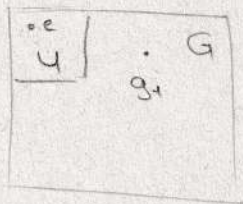 e
U G
g₁